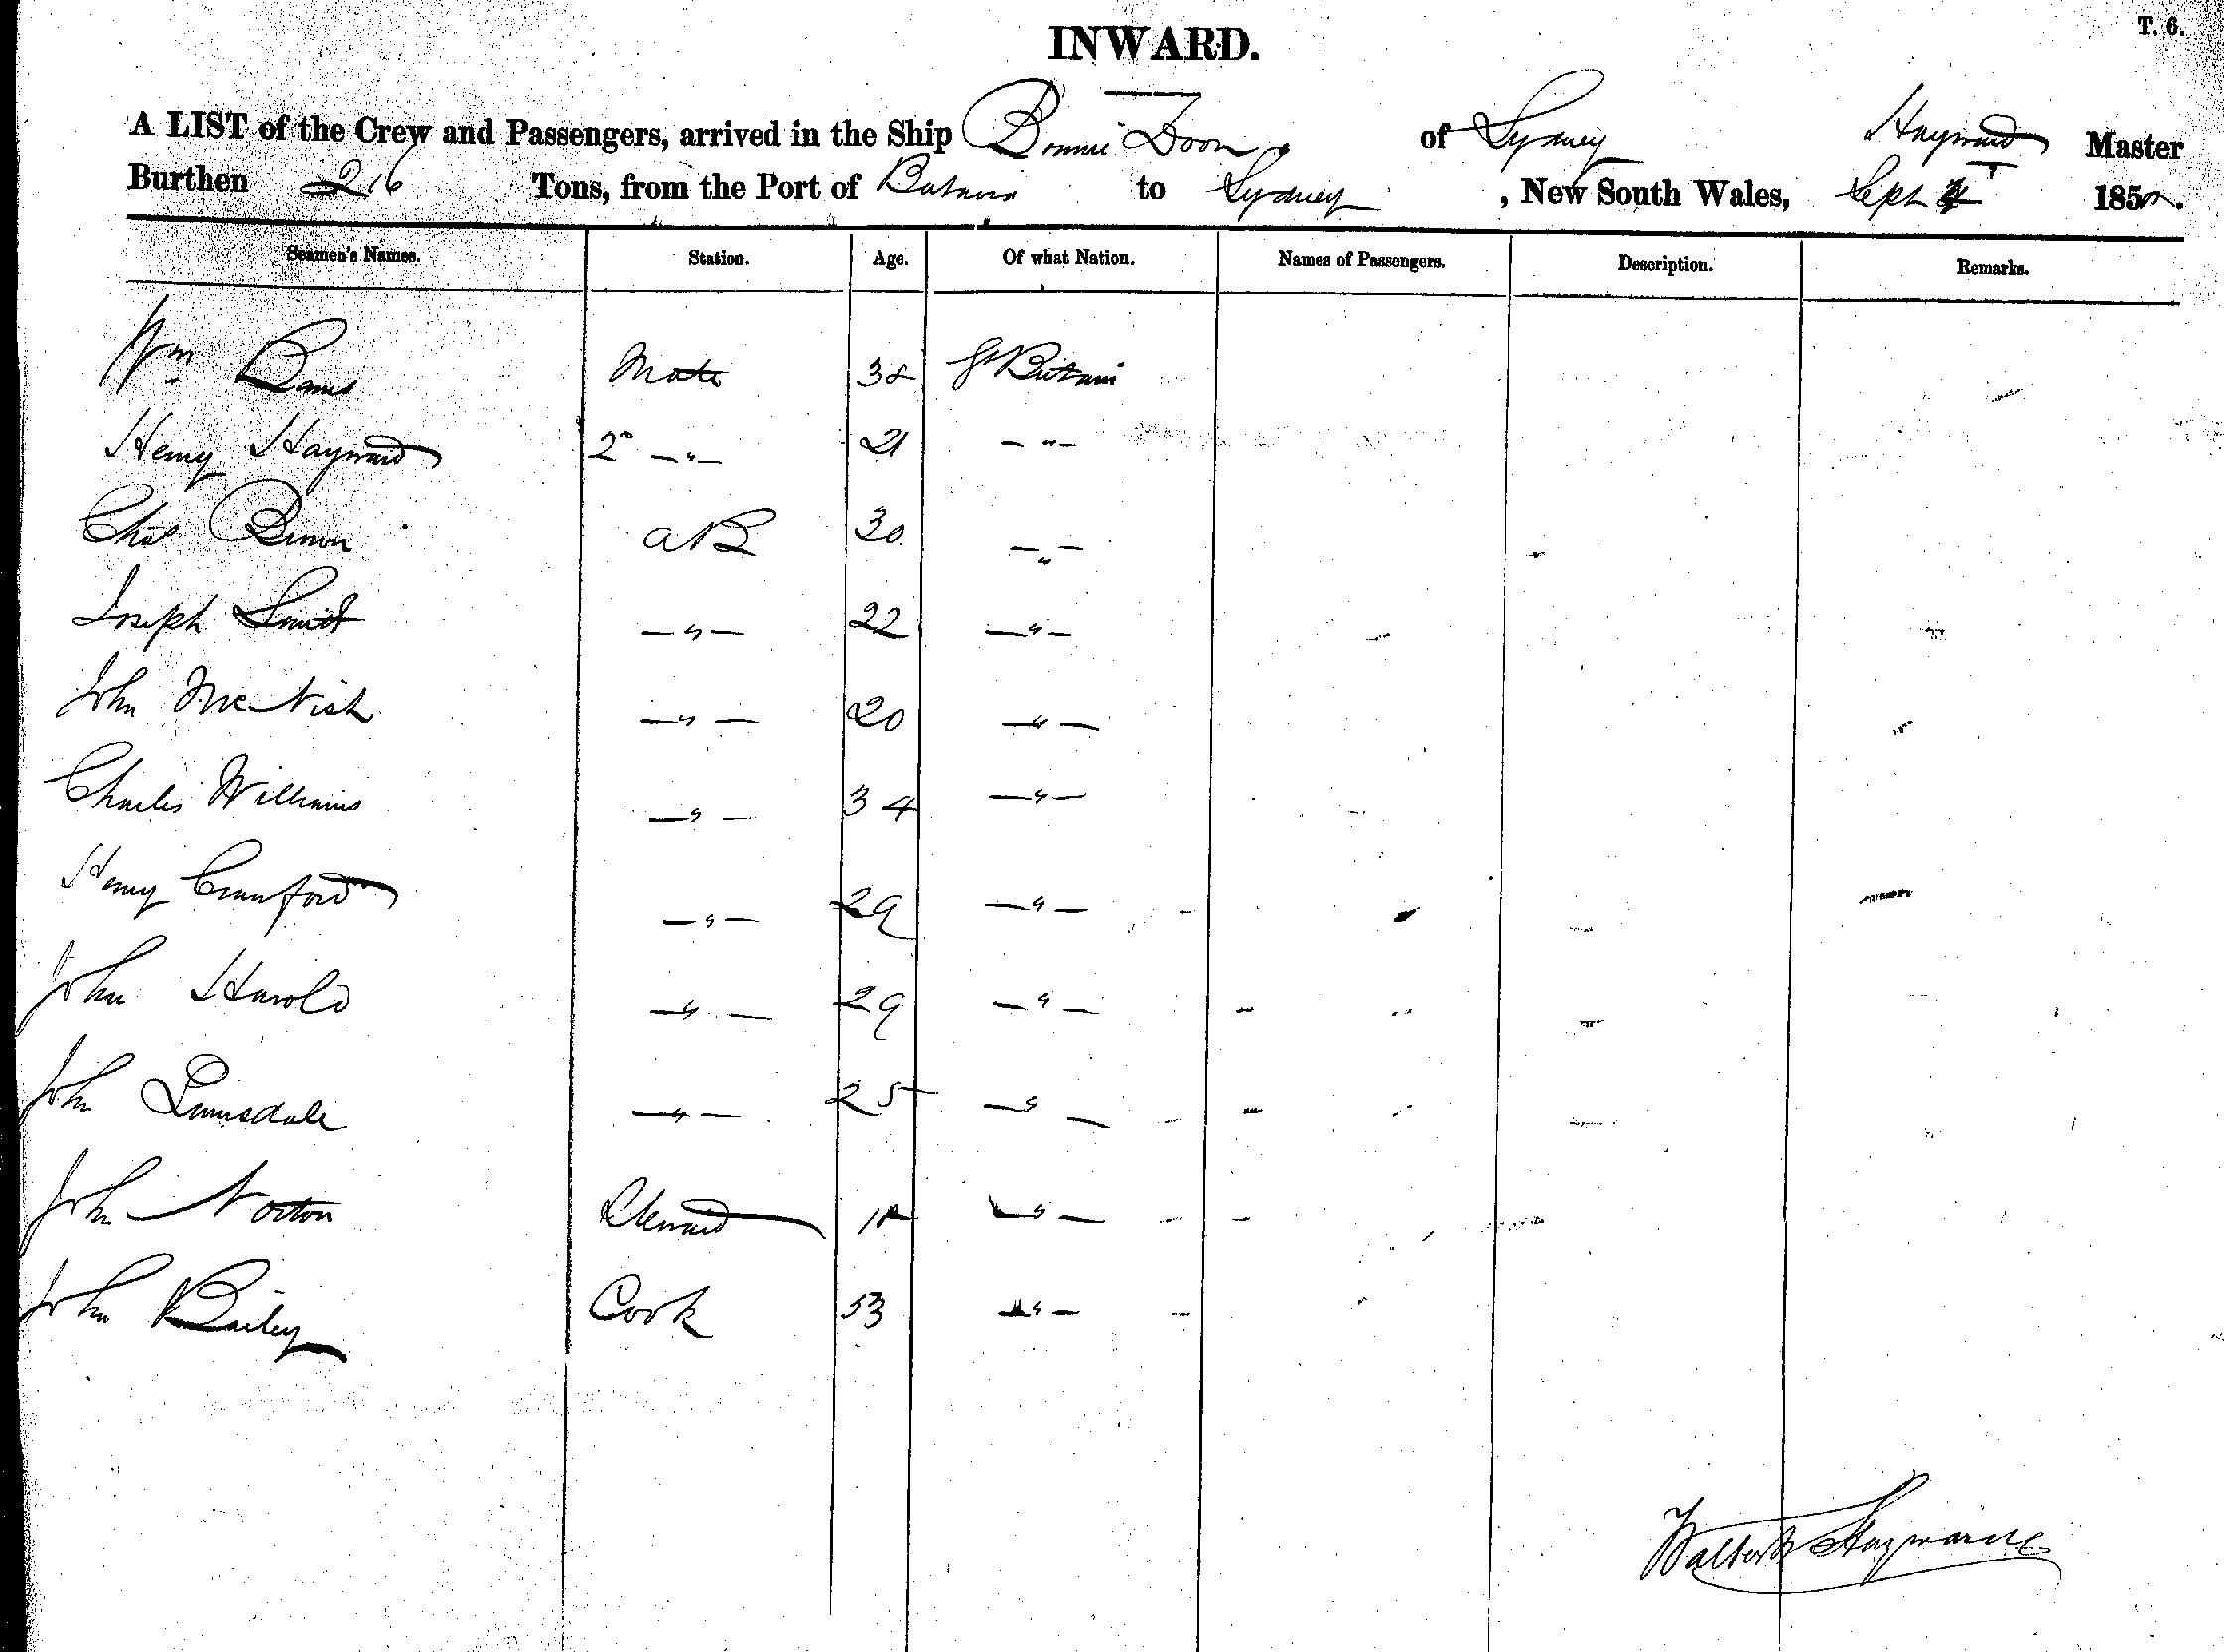 T. 6.
INWARD.
A LIST of the Crew and Passengers, arrived in the Ship Bonnie Doon of Sydney Hayward Master
Burthen 216 Tons, from the Port of Batavia to Sydney, New South Wales, Sept 185
Seamen's Names. Station. Age. Of what Nation. Names of Passengers. Description. Remarks.
Wm Mate 38 Gt Britain
Henry Hayward 2d —"— 21 —"—
Chas Brown AB 30 —"—
Joseph Smith —"— 22 —"—
John McNish —"— 20 —"—
Charles Williams —"— 34 —"—
Henry Crawford —"— 29 —"—
John Harold —"— 29 —"—
John Lumsdale —"— 25 —"—
John Norton Steward 18 —"—
John Bailey Cook 53 —"—
Walter Hayward